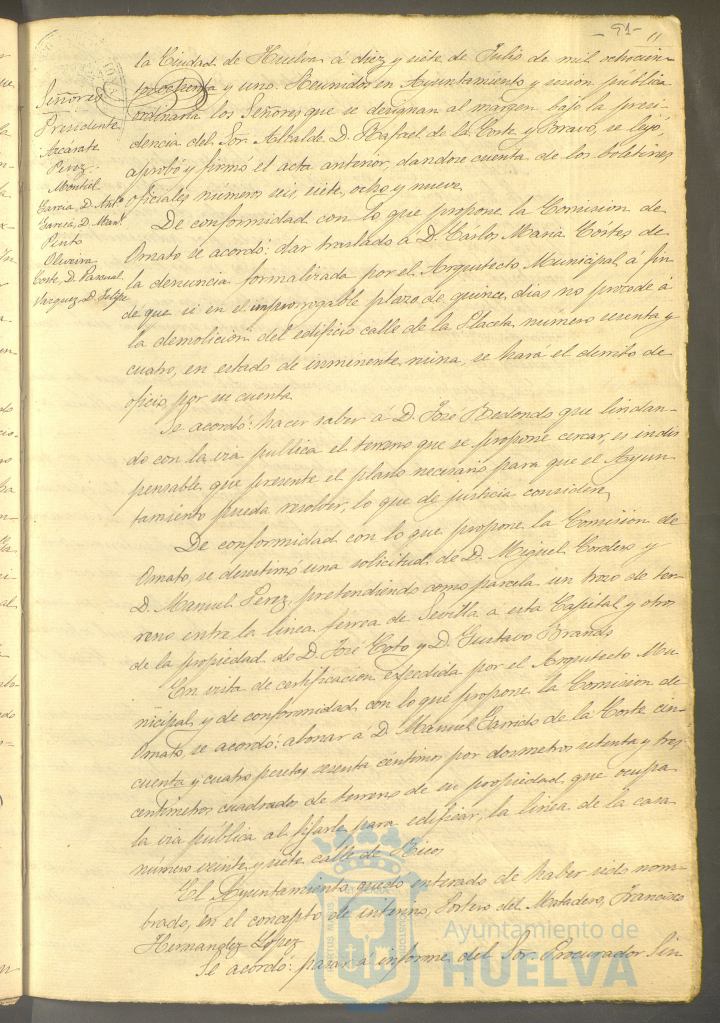 - 91 -
Señores
Presidente
Azcárate
Perez
Montiel
Garcia, D. Antº
Garcia, D. Manl.
Pinto
Oliveira
Corte, D. Pascual
Vazquez, D. Felipe
la Ciudad de Huelva á diez y siete de Julio de mil ochocien-
tos ochenta y uno. Reunidos en Ayuntamiento y sesión pública
ordinaria los Señores que se designan al margen bajo la presi-
dencia del Sor. Alcalde D. Rafael de la Corte y Bravo, se leyó,
aprobó y firmó el acta anterior, dandose cuenta de los boletines
oficiales números seis, siete, ocho y nueve.
De conformidad con lo que propone la Comision de
Ornato se acordó: dar traslado á D. Cárlos Maria Cortes de
la denuncia formalizada por el Arquitecto Municipal á fin
de que si en el improrrogable plazo de quince dias no procede á
la demolicion del edificio calle de la Placeta número sesenta y
cuatro, en estado de inminente ruina, se hará el derribo de
oficio por su cuenta.
Se acordó: hacer saber á D. José Redondo que lindan-
do con la via publica el terreno que se propone cercar, es indis
pensable que presente el plano necesario para que el Ayun
tamiento pueda resolver, lo que de justicia considere,
De conformidad con lo que propone la Comision de
Ornato, se desestimó una solicitud de D. Miguel Cordero y
D. Manuel Perez, pretendiendo como parcela un trozo de ter-
reno entre la linea ferrea de Sevilla a esta Capital y otros
de la propiedad de D. José Coto y D. Gustavo Brando
En vista de certificacion expedida por el Arquitecto Mu-
nicipal y de conformidad con lo que propone la Comision de
Ornato, se acordó: abonar á D. Manuel Garrido de la Corte cin-
cuenta y cuatro pesetas sesenta céntimos por dos metros setenta y tres
centimetros cuadrados de terreno de su propiedad que ocupa
la via pública al fijarle para edificar, la linea de la casa
número veinte y siete calle de Rico,
El Ayuntamiento quedó enterado de haber sido nom-
brado, en el concepto de interino, Portero del Matadero, Francisco
Hernandez Lopez
Se acordó: pasar á informe del Sor. Procurador Sín
Ayuntamiento de
HUELVA